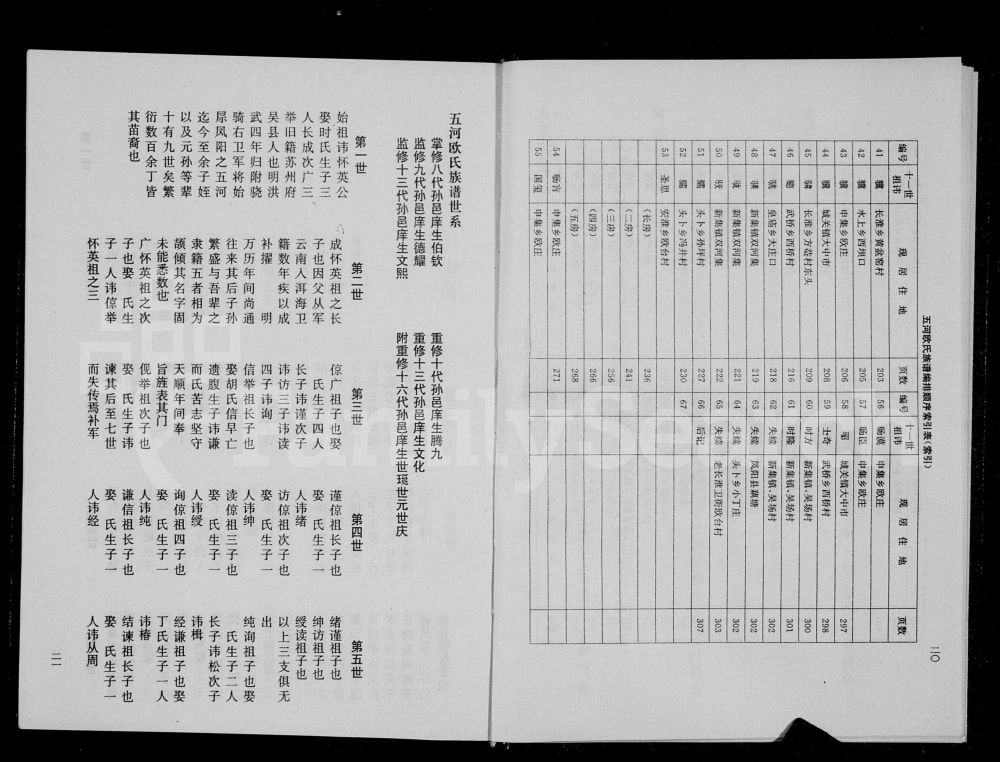 二〇
五河欧氏族谱编排顺序索引表(索引)
编号 十一世祖讳 现居住地 页数 编号 十一世祖讳 现居住地 页数
41 长淮乡黄盆窑村 203 56 申集乡欧庄
42 水上乡西坝口 206 57 旸臣 申集乡欧庄
43 申集乡欧庄 205 58 城关镇大中市 297
44 城关镇大中市 208 59 士奇 武桥乡西桥村 298
45 长淮乡方巷村东头 209 60 时方 新集镇,吴场村 300
46 武桥乡西桥村 216 61 时隆 新集镇,吴场村 301
47 皇庙乡大庄口 218 62 失续 新集镇,吴场村 302
48 新集镇双河集 219 63 失续 凤阳县藕塘 302
49 新集镇双河集 221 64 失续 头卜乡小丁庄 302
50 新集镇双河集 222 65 失续 老长淮卫街欧台村 303
51 头卜乡孙坪村 227 66 后记 307
52 头卜乡冯井村 230 67
53 圣思 安淮乡欧台村
(长房) 236
(二房) 241
(三房) 256
(四房) 266
(五房) 268
54 旸言 申集乡欧庄 271
55 国玺 申集乡欧庄
五河欧氏族谱世系
掌修八代孙邑庠生伯钦
监修九代孙邑庠生德耀
监修十三代孙邑庠生文熙
重修十代孙邑庠生腾九
重修十三代孙邑庠生文化
附重修十六代孙庠生世珽世元世庆
第一世
始祖讳怀英公
娶时氏生子三
人长成次广三
举旧籍苏州府
吴县人也明洪
武四年归附骁
骑右卫军将始
屃凤阳之五河
迄今至余子姪
以及元孙等辈
十有九世矣繁
衍数百余丁皆
其苗裔也
第二世
成怀英祖之长
子也因父从军
云南入洱海卫
籍数年疾以成
补擢 明
万历年间尚通
往来其后子孙
繁盛与吾辈之
隶籍五者相为
颉倾其名字固
未能悉数也
广怀英祖之次
子也娶 氏生
子一人讳倞举
怀英祖之三
第三世
倞广祖子也娶
氏生子四人
长子讳谨次子
讳访三子讳读
四子讳询
信举祖长子也
娶胡氏信早亡
遗腹生子讳谦
而氏苦志坚守
天顺年间奉
旨旌表其门
伣举祖次子也
娶 氏生子讳
谏其后至七世
而失传焉补军
第四世
谨倞祖长子也
娶 氏生子一
人讳绪
访倞祖次子也
娶 氏生子一
人讳绅
读倞祖三子也
娶 氏生子一
人讳绶
询倞祖四子也
娶 氏生子一
人讳纯
谦信祖长子也
娶 氏生子一
人讳经
第五世
绪谨祖子也
绅访祖子也
绶读祖子也
以上三支俱无
出
纯询祖子也娶
氏生子二人
长子讳松次子
讳楫
经谦祖子也娶
丁氏生子一人
讳椿
结谏祖长子也
娶 氏生子一
人讳从周
二一